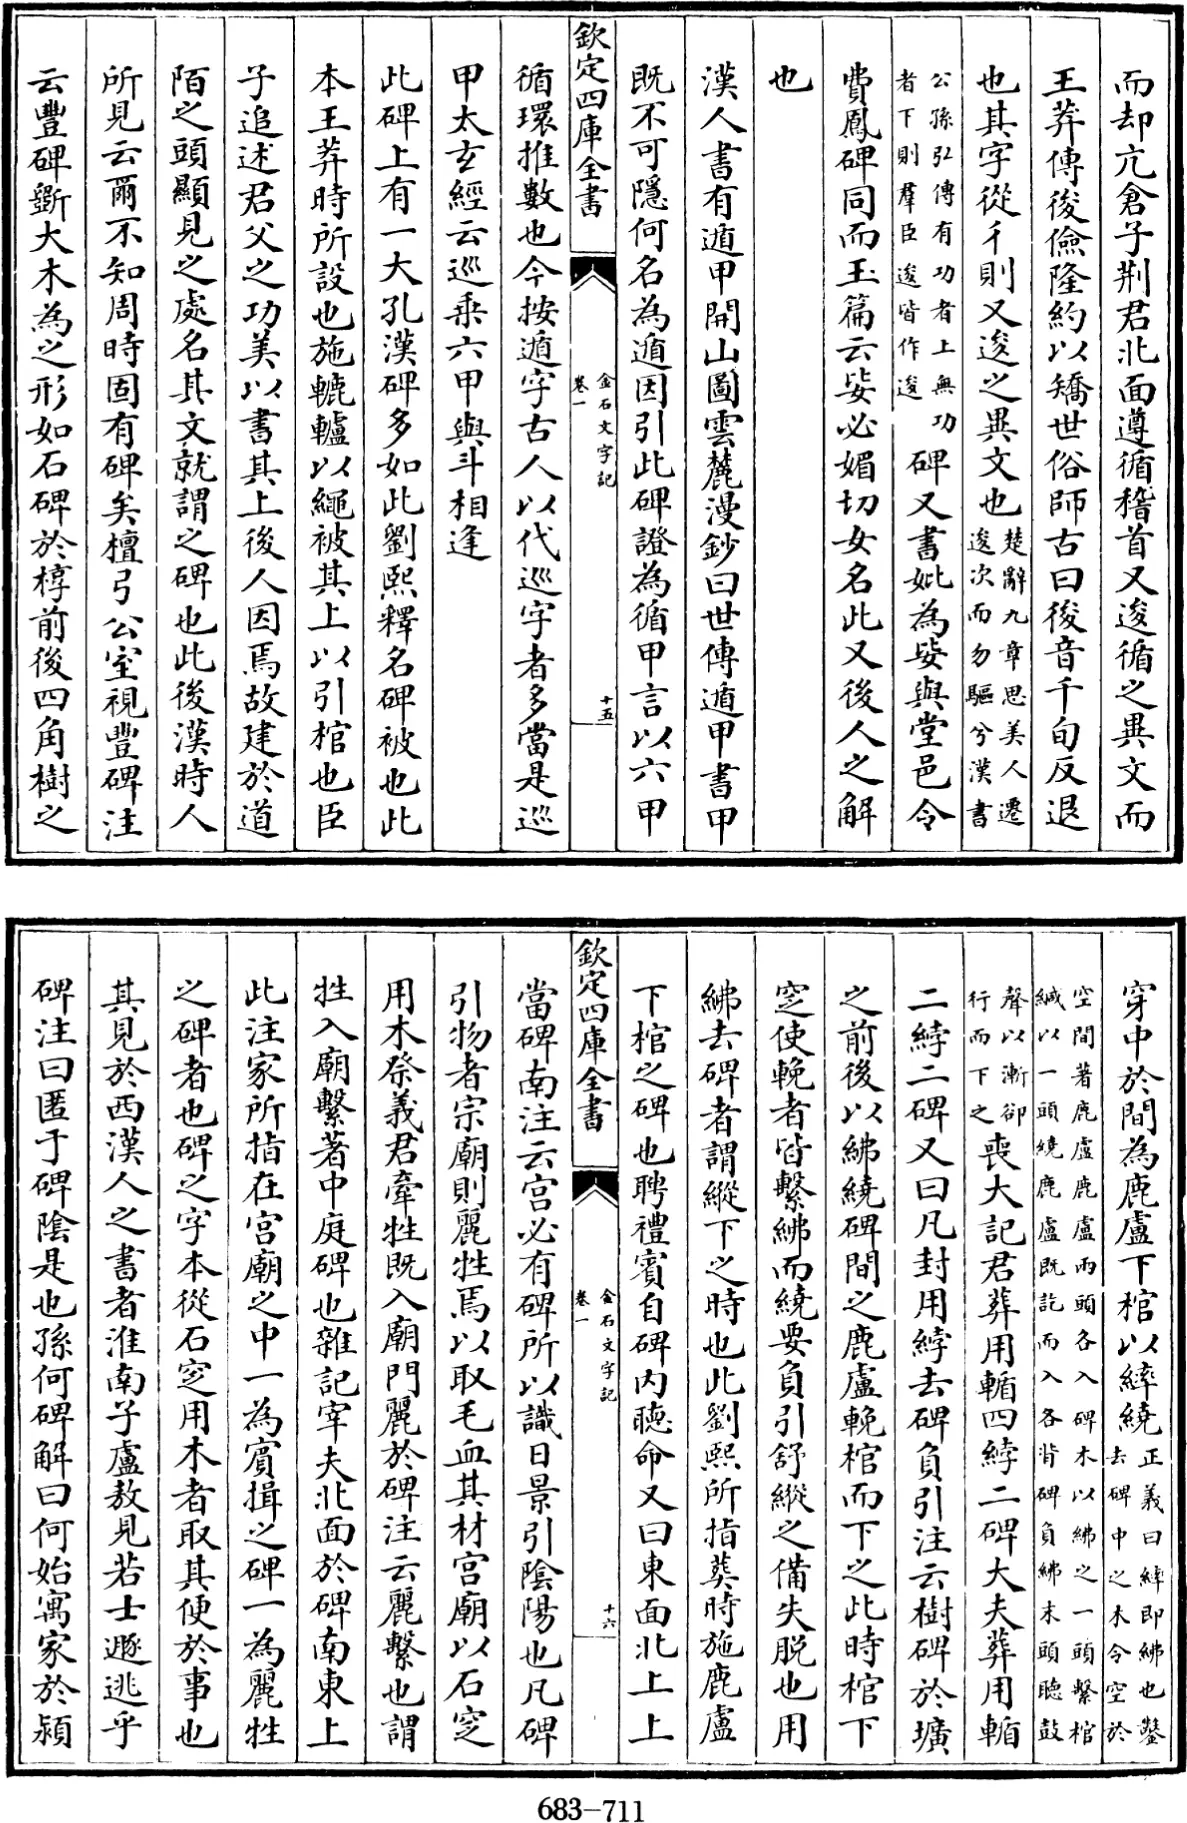 而却亢倉子荆君北面遵循稽首又逡循之異文而
王莽傳後儉隆約以矯世俗師古曰後音千旬反退
也其字從彳則又逡之異文也楚辭九章思美人遷
逡次而勿驅兮漢書
公孫弘傳有功者上無功
者下則羣臣逡皆作逡碑又書妣為娿與堂邑令
費鳳碑同而玉篇云娿必媚切女名此又後人之解
也
漢人書有遁甲開山圖雲麓漫鈔曰世傳遁甲書甲
既不可隱何名為遁因引此碑證為循甲言以六甲
欽定四庫全書
金石文字記
卷一
十五
循環推數也今按遁字古人以代巡字者多當是巡
甲太玄經云巡乗六甲與斗相逢
此碑上有一大孔漢碑多如此劉熙釋名碑被也此
本王莽時所設也施轆轤以繩被其上以引棺也臣
子追述君父之功美以書其上後人因焉故建於道
陌之頭顯見之處名其文就謂之碑也此後漢時人
所見云爾不知周時固有碑矣檀弓公室視豐碑注
云豐碑斵大木為之形如石碑於椁前後四角樹之
穿中於間為鹿盧下棺以繂繞正義曰繂即紼也鑿
去碑中之木令空於
空間著鹿盧鹿盧兩頭各入碑木以紼之一頭繫棺
緘以一頭繞鹿盧既訖而入各背碑負紼末頭聽鼓
聲以漸却
行而下之喪大記君葬用輴四綍二碑大夫葬用輴
二綍二碑又曰凡封用綍去碑負引注云樹碑於壙
之前後以紼繞碑間之鹿盧輓棺而下之此時棺下
窆使輓者皆繫紼而繞要負引舒縱之備失脱也用
紼去碑者謂縱下之時也此劉熙所指葬時施鹿盧
下棺之碑也聘禮賓自碑内聽命又曰東面北上上
欽定四庫全書
金石文字記
卷一
十六
當碑南注云宫必有碑所以識日景引陰陽也凡碑
引物者宗廟則麗牲焉以取毛血其材宫廟以石窆
用木祭義君牽牲既入廟門麗於碑注云麗繫也謂
牲入廟繫著中庭碑也雜記宰夫北面於碑南東上
此注家所指在宫廟之中一為賓揖之碑一為麗牲
之碑者也碑之字本從石窆用木者取其便於事也
其見於西漢人之書者淮南子盧敖見若士遯逃乎
碑注曰匿于碑陰是也孫何碑解曰何始寓家於潁
683-711